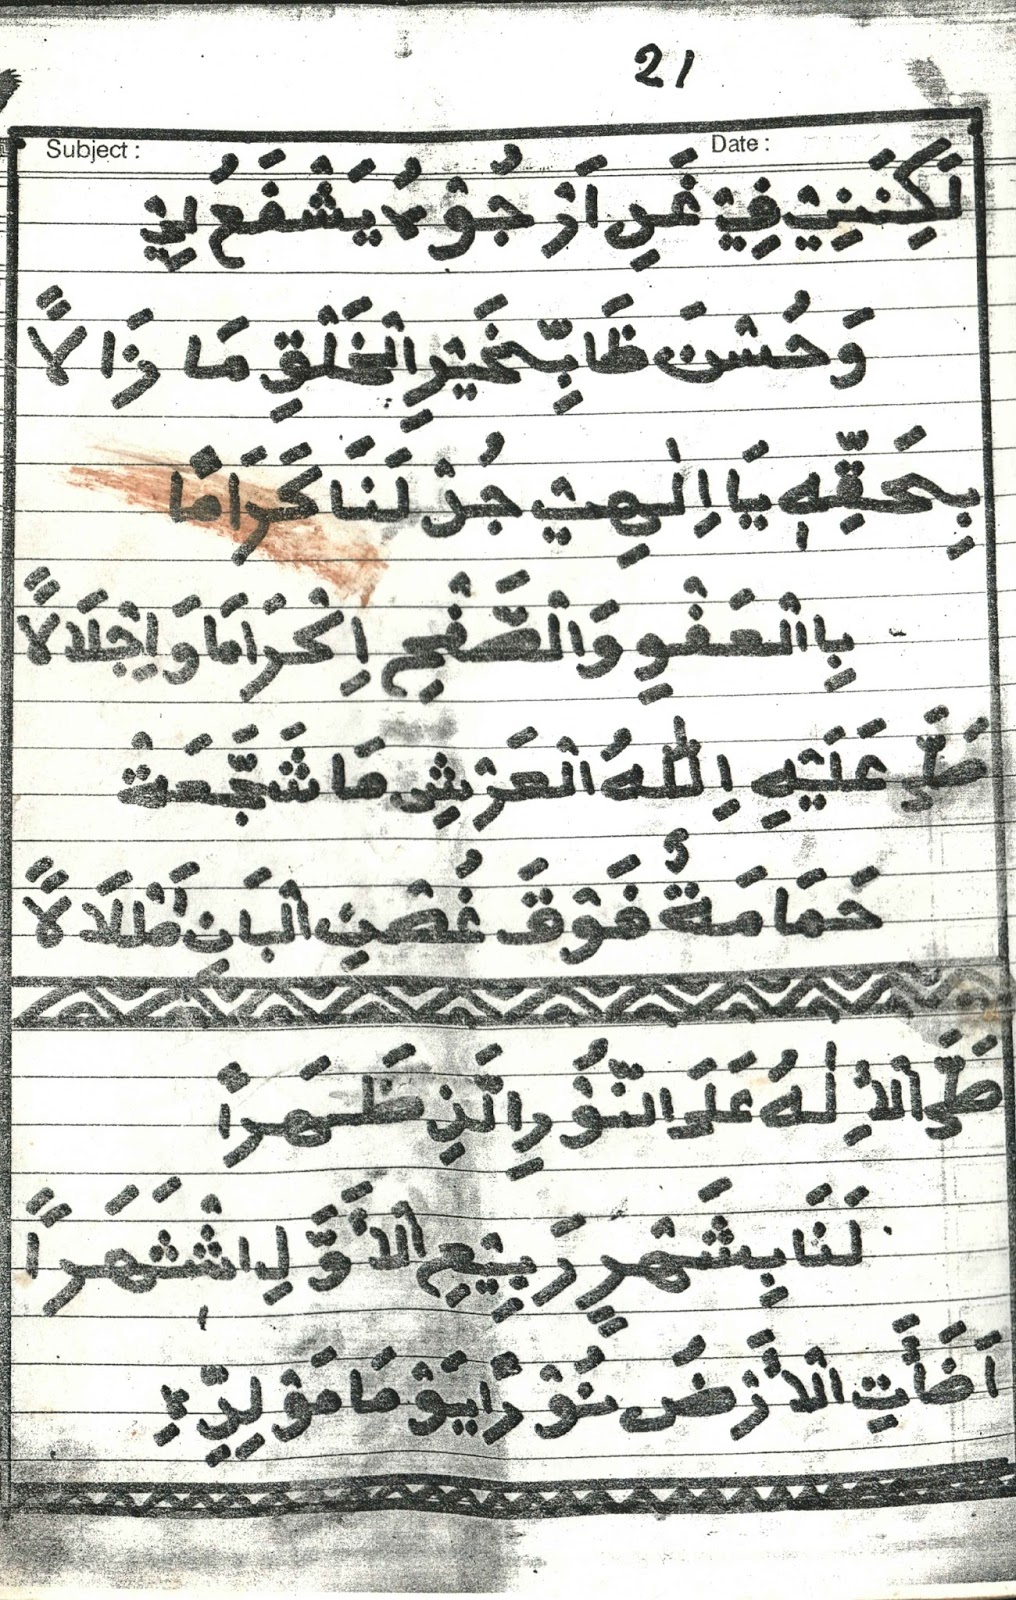 21
Subject : Date :
لَكِنَنِيْ فِيْ غَدٍ اَرْجُوْهُ يَشْفَعُ لِيْ
وَحُسْنَ ظَنِّيْ بِخَيْرِ الْخَلْقِ مَا زَالاً
بِحَقِّهِ يَا اِلٰهِيْ جُدْ لَنَا كَرَامًا
بِاالْعَفْوِ وَالصَّفْحِ اِكْرَامَا وَ اِجْلَالاً
صَلَّى عَلَيْهِ اِللهُ الْعَرْشِ مَا شَجَّعَتْ
حَمَامَةٌ فَوْقَ غُصْنِ الْبَانِ
صَلَّى الْاِلٰهُ عَلَى النُّوْرِ الَّذِ ظَهَراً
لَنَا بِشَهْرِ رَبِيْعِ الْاَوَّلِ اشْتَهَرَاً
اَضَأَتِ الْاَرْضَ نُوْرًا يَوْمَا مَوْلِدِهِ